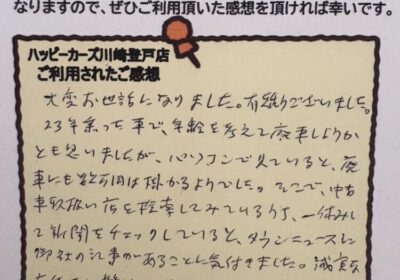 なりますので、ぜひご利用頂いた感想を頂ければ幸いです。
ハッピーカーズ川崎登戸店
ご利用されたご感想
大変お世話になりました。有難うございました。
23年乗った車で、年齢を考えて廃車しようか
とも思いましたが、パソコンで見ていると、廃
車にも数万円は掛かるようでした。そこで、中古
車取扱い店を検索してみているうち、一休みし
て新聞をチェックしていると、タウンニュースに
御社の記事があることに気付きました。誠実な